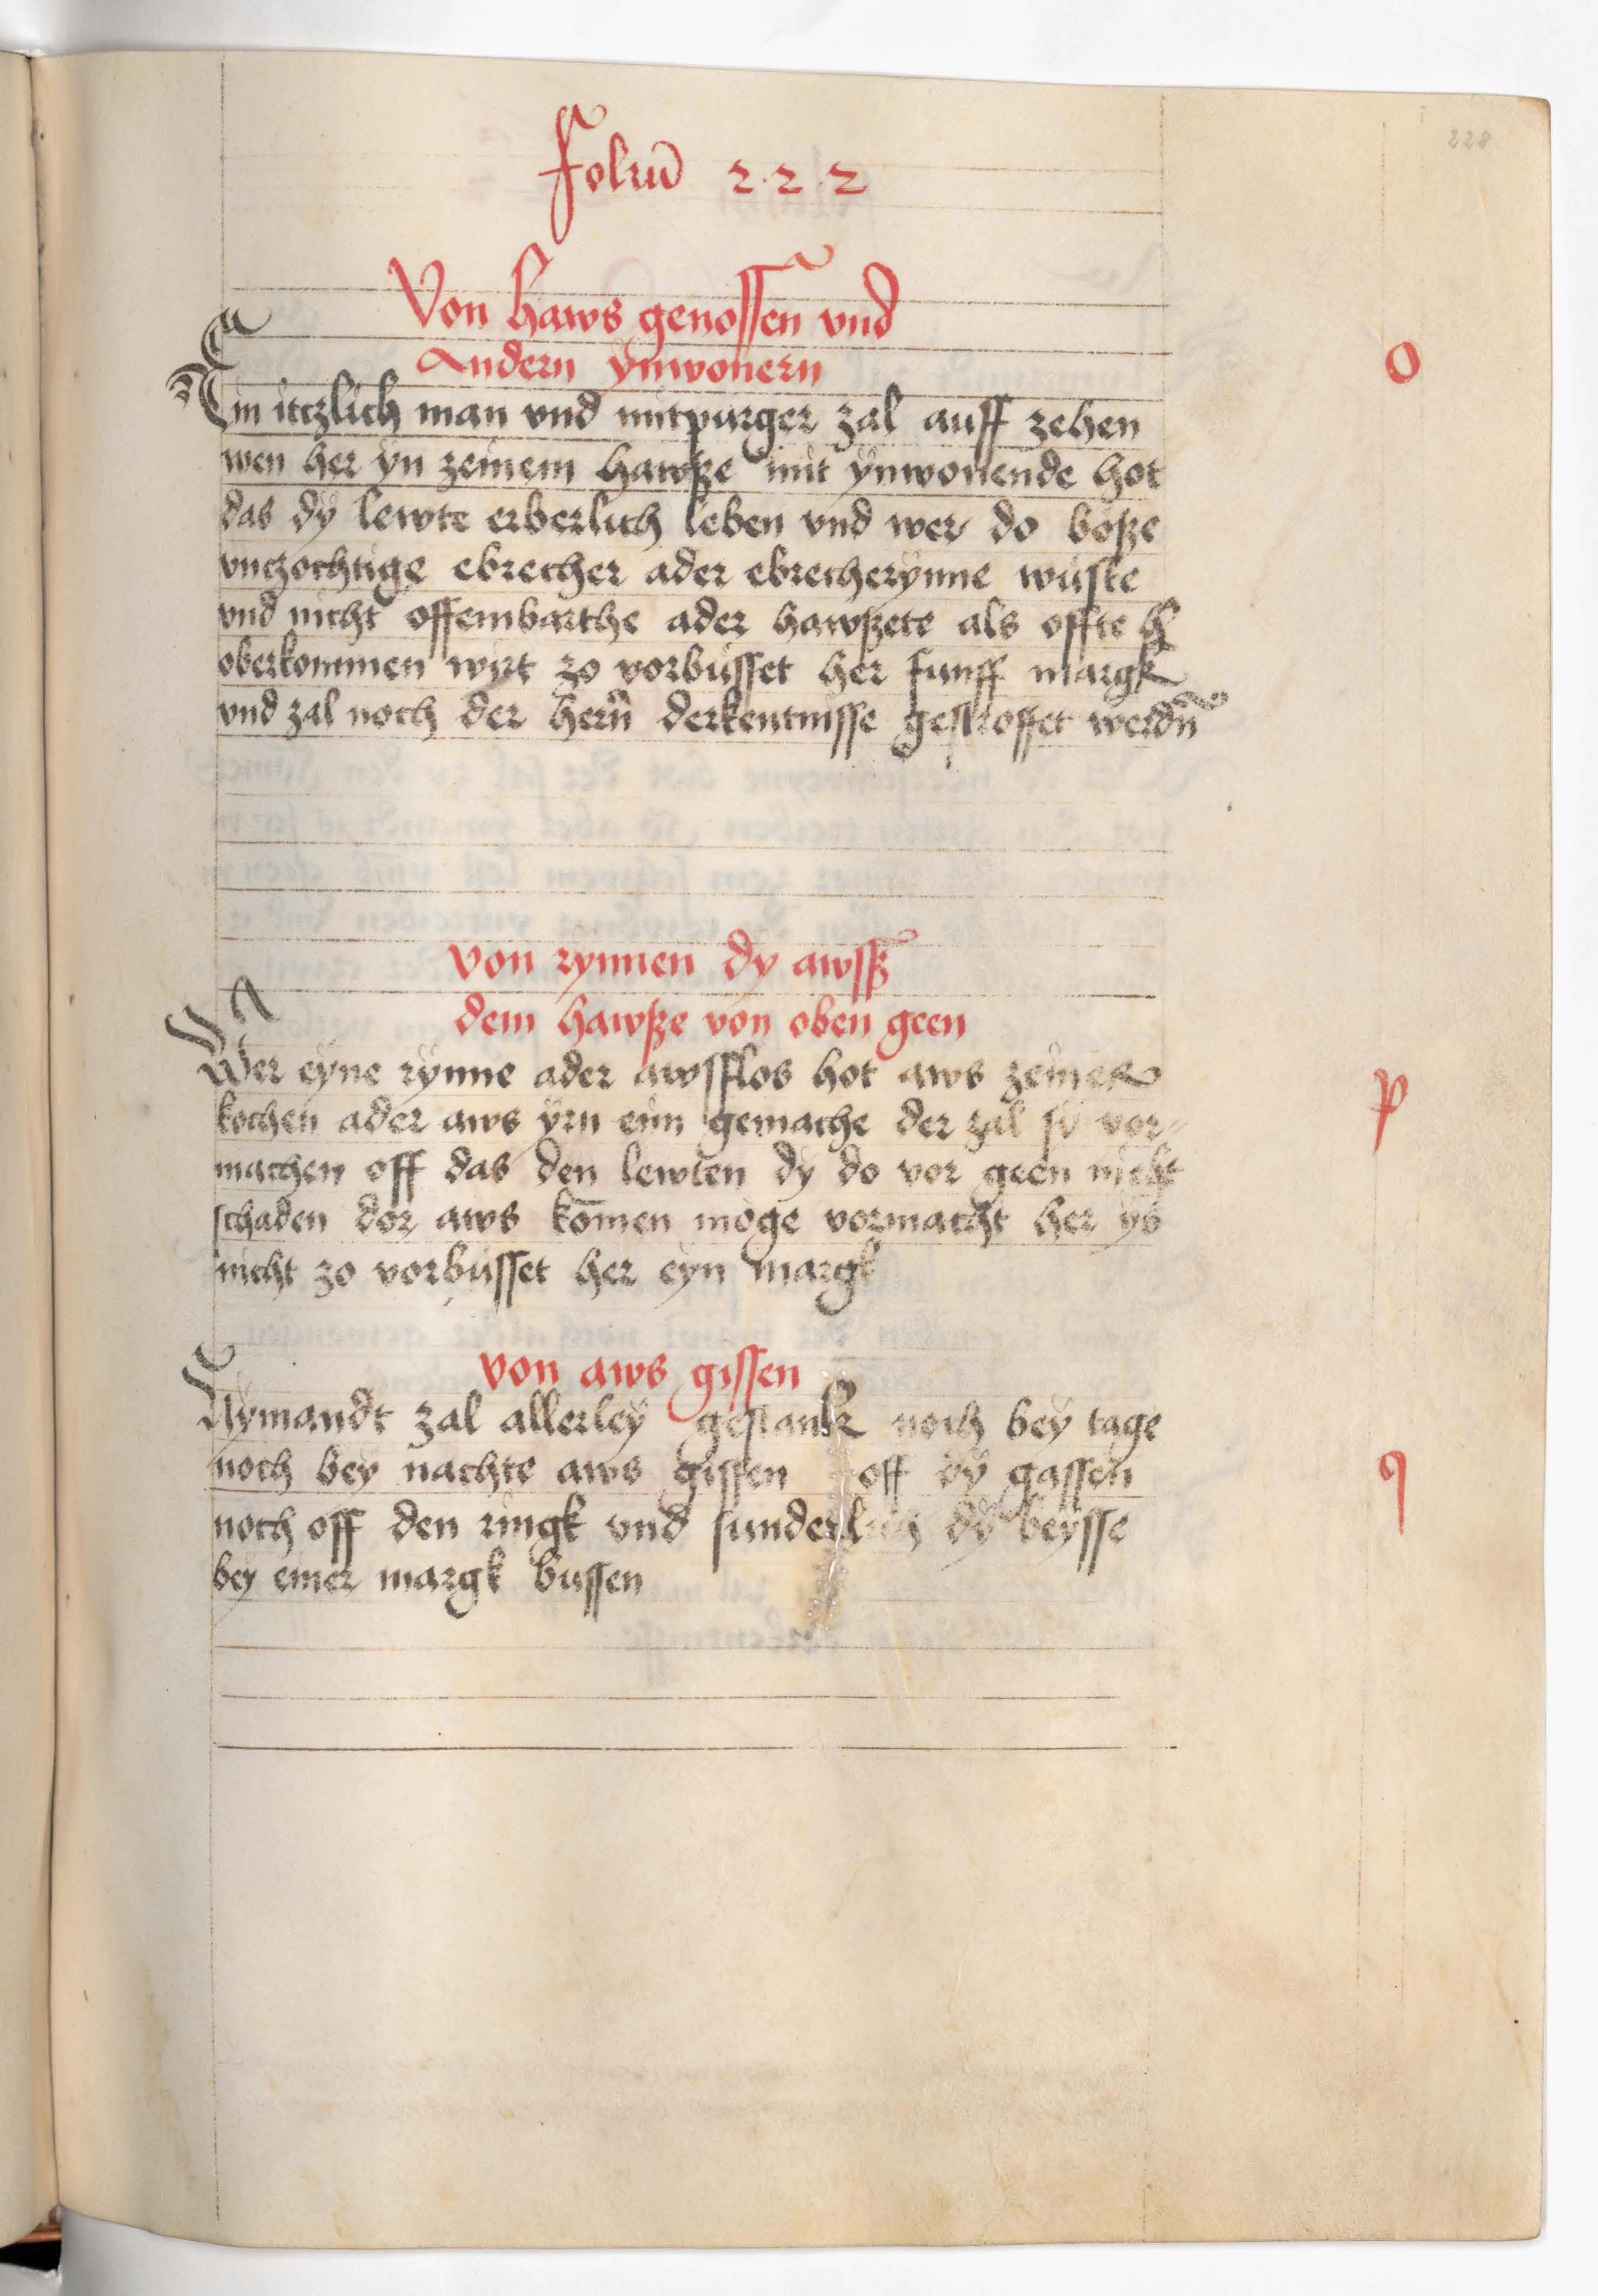 228
Foliu̅ 2·2·2
Von haws genossen vnd
andern ynwonern
o
Ein itczlich man vnd mitpurger zal auff zehen
wen her yn zeinem hawße mit ynwonende hot
das dÿ lewte erberlich leben vnd wer do böße
vnczochtige ebrecher ader ebrecherynne wüste
vnd nicht offembarthe ader hawßete als offte h
oberkommen wirt zo vorbüsset her funff margk
vnd zal noch der hern̅ derkentnisse gestroffet werdn̅
von rynnen dy awsß
dem hawße von oben geen
p
Wer eyne rynne ader awsflos hot aws zeiner
kochen ader aws yrn eim gemache der zal sÿ vor-
machen off das den lewten dÿ do vor geen nicht
schaden dor aws ko̅men möge vormacht her ÿs
nicht zo vorbüsset her eyn margk
von aws gissen
q
Nymandt zal allerleÿ gestank noch beÿ tage
noch bey nachte aws gissen off dÿ gassen
noch off den ringk vnd sunderlich dÿ beysse
bey einer margk bussen